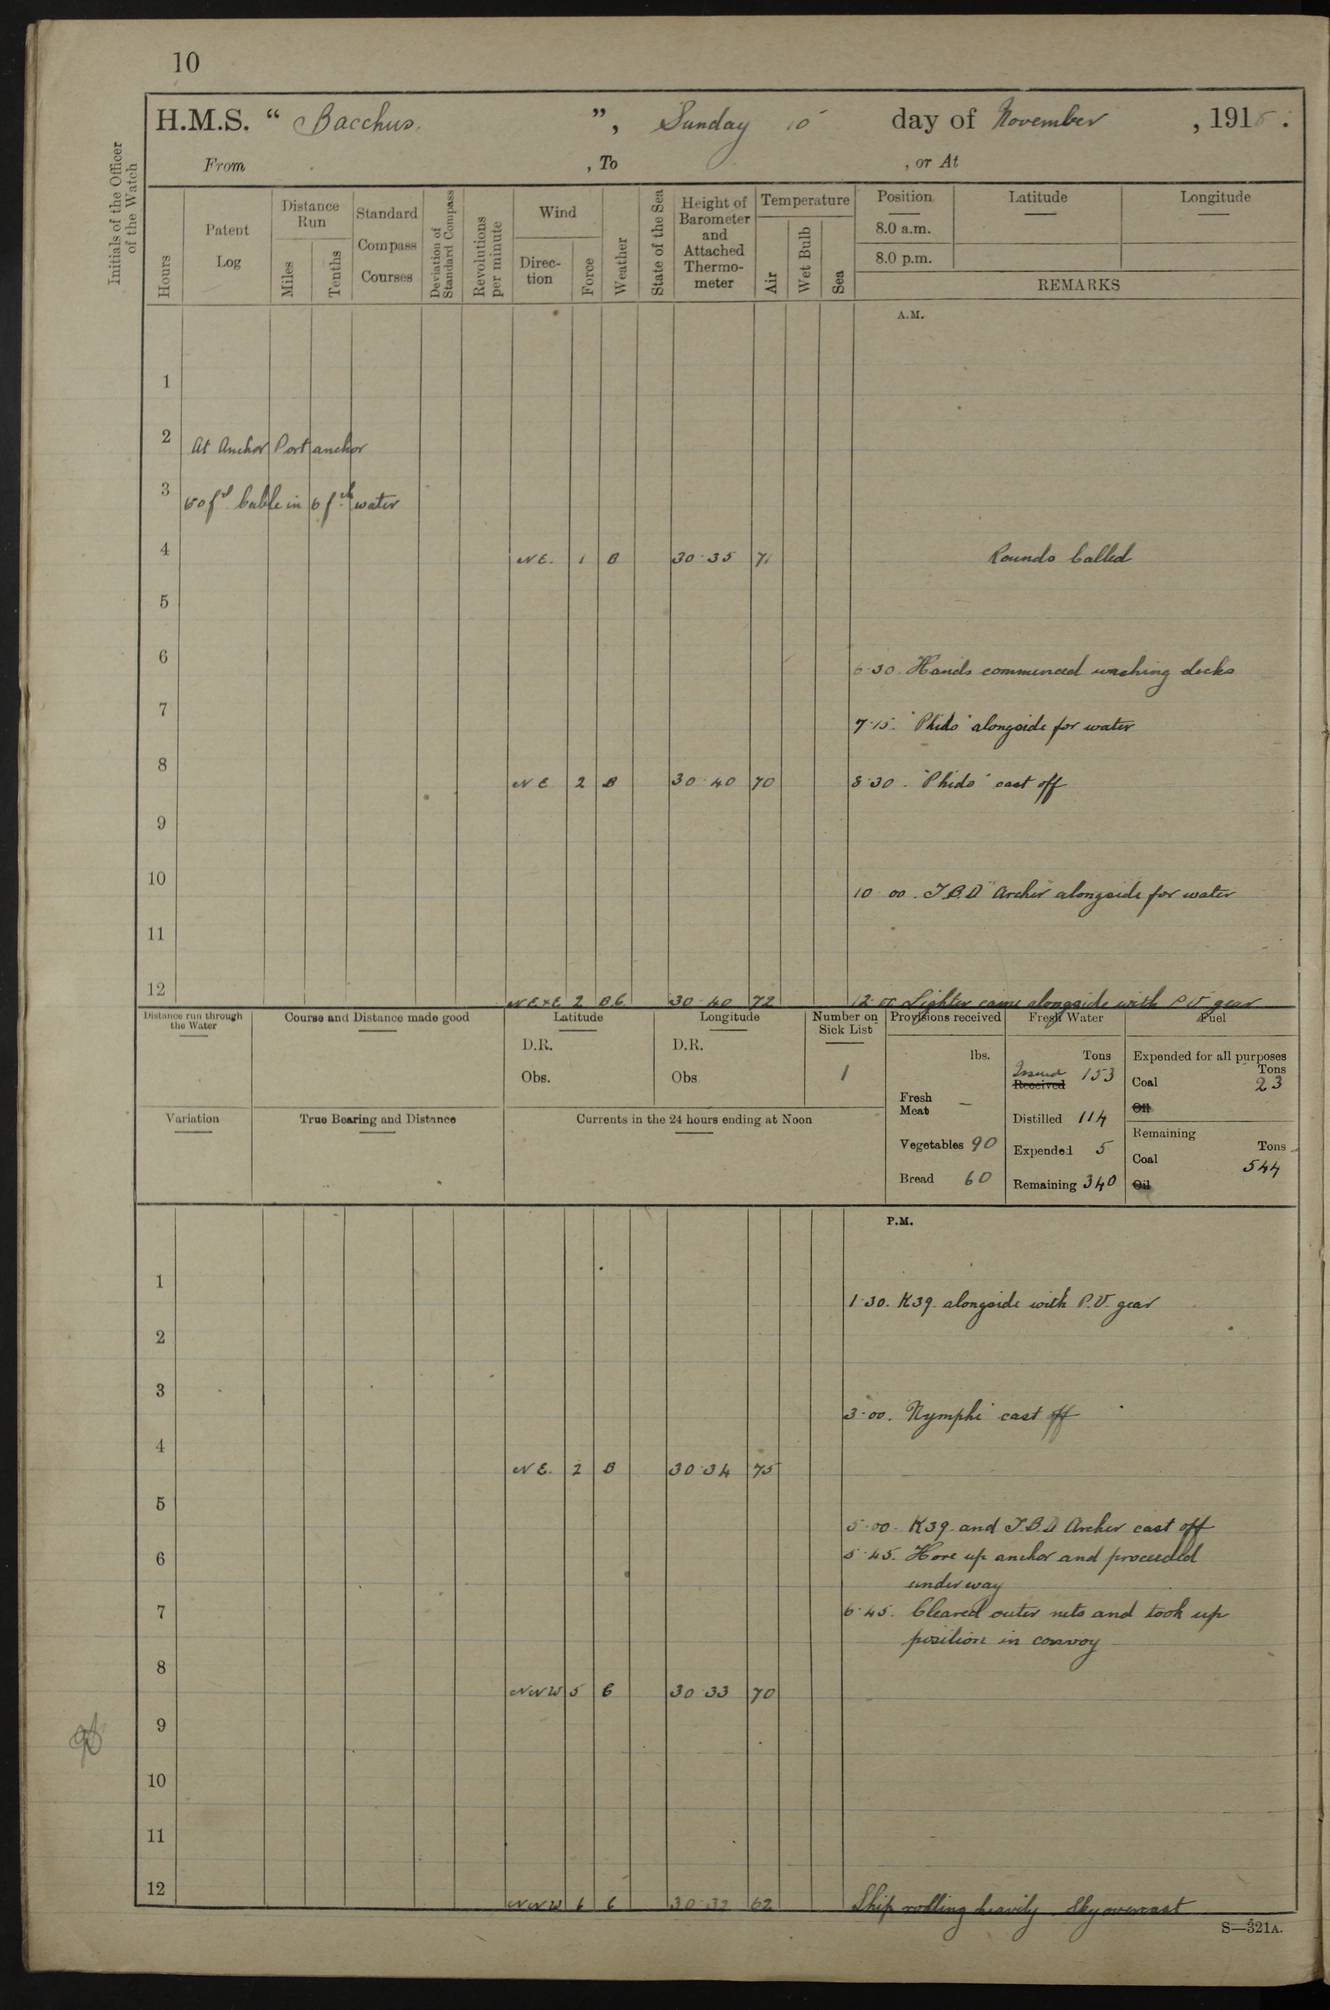 10
H.M.S. “ Bacchus. ”, Sunday 10 day of November , 1918.
From , To , or At
Initials of the Officer of the Watch
Hours
Patent Log
Distance Run
Miles
Tenths
Standard Compass Courses
Deviation of Standard Compass
Revolutions per minute
Wind
Direction
Force
Weather
State of the Sea
Height of Barometer and Attached Thermometer
Temperature
Air
Wet Bulb
Sea
Position Latitude Longitude
8.0 a.m.
8.0 p.m.
REMARKS
A.M.
1
2 At Anchor Port anchor
3 fs. Cable in 6 fth water
4 NE. 1 B 30.35 71 Rounds Called
5
6
6.30. Hands commenced washing decks
7
7.15. "Phido" alongside for water
8 NE 2 B 30.40 70 8.30. "Phido" cast off
9
10
10.00. T.B.D "Archer alongside for water
11
12 NExE 2 BC 30.40 72 12.00 Lighter came alongside with P V gear
Distance run through the Water
Course and Distance made good
Latitude
D.R.
Obs.
Longitude
D.R.
Obs
Number on Sick List
1
Provisions received
lbs.
Fresh Meat —
Vegetables 90
Bread 60
Fresh Water
Tons
Issued
Received 153
Distilled 114
Expended 5
Remaining 340
Fuel
Expended for all purposes
Tons
Coal 23
Oil
Remaining
Tons
Coal 544
Oil
Variation
True Bearing and Distance
Currents in the 24 hours ending at Noon
P.M.
1
1.30. K39. alongside with P.V. gear
2
3
3.00. Nymphe cast off
4 NE. 2 B 30.34 75
5
5.00. K39. and T.B.D Archer cast off
6 5.45. Hove up anchor and proceeded
under way
7 6.45. Cleared outer nets and took up
position in convoy
8 NNW 5 C 30.33 70
9
10
11
12 NNW 6 C 30.32 62 Ship rolling heavily Sky overcast
S—321A.